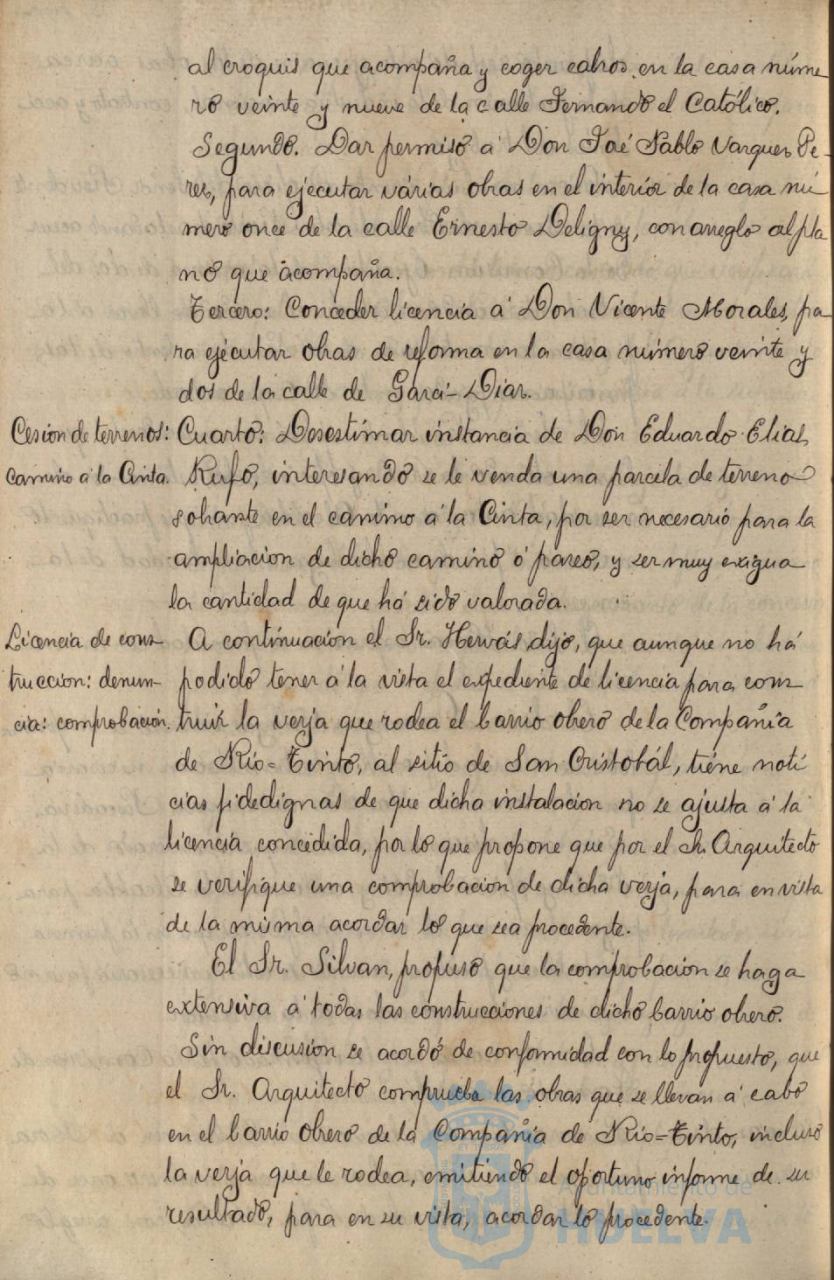 al croquis que acompaña y coger calzos en la casa núme
ro veinte y nueve de la calle Fernando el Católico.
Segundo. Dar permiso á Don José Pablo Vazquez Pe-
rez, para ejecutar várias obras en el interior de la casa nú
mero once de la calle Ernesto Deligny, con arreglo al pla
no que acompaña.
Tercero: Conceder licencia á Don Vicente Morales, pa
ra ejecutar obras de reforma en la casa número veinte y
dos de la calle de Garci-Diaz.
Cesion de terrenos:
Camino á la Cinta.
Cuarto: Desestimar instancia de Don Eduardo Elias
Rufo, interesando se le venda una parcela de terreno
sobrante en el camino á la Cinta, por ser necesario para la
ampliacion de dicho camino ó paseo, y ser muy exigua
la cantidad de que há sido valorada.
Licencia de cons
truccion: denun-
cia: comprobación.
A continuacion el Sr. Hervás dijo, que aunque no há
podido tener á la vista el expediente de licencia para cons
truir la verja que rodea el barrio obrero de la Compañia
de Rio=Tinto, al sitio de San Cristobál, tiene noti
cias fidedignas de que dicha instalacion no se ajusta á la
licencia concedida, por lo que propone que por el Sr. Arquitecto
se verifique una comprobacion de dicha verja, para en vista
de la misma acordar lo que sea procedente.
El Sr. Silvan, propuso que la comprobacion se haga
extensiva á todas las construcciones de dicho barrio obrero.
Sin discusion se acordó de conformidad con lo propuesto, que
el Sr. Arquitecto compruebe las obras que se llevan á cabo
en el barrio obrero de la Compañia de Rio=Tinto, incluso
la verja que le rodea, emitiendo el oportuno informe de su
resultado, para en su vista, acordar lo procedente.
Ayuntamiento de
HUELVA